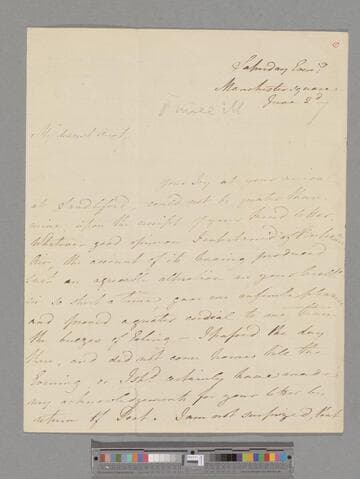 Saturday Even.g
Manchester Square
June 2d
My dearest Aunt,
Your Joy at your arrival
at Sandleford could not be greater than
mine upon the receipt of your kind letter.
Whatever good opinion I entertained of
the account of its having produced
such an agreable alteration in your health
in so short a time, gave me infinite pleasure
and proved a greater cordial to me than
the breezes of Ealing — I passed the day
there, and did not come home till the
Evening or I shd certainly have made
my acknowledgements for your letter by
return of Post. I am not surprized, that